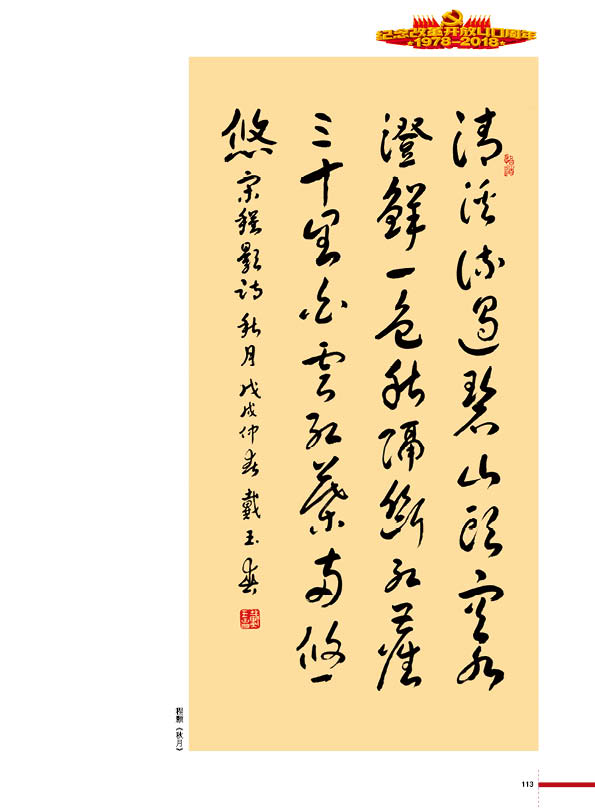 纪念改革开放40周年
1978-2018
清溪流過碧山頭空水
澄鮮一色秋隔斷紅塵
三十里白雲紅葉兩悠
悠
宋程顥詩秋月戊戌仲春戴玉
程颢《秋月》
113